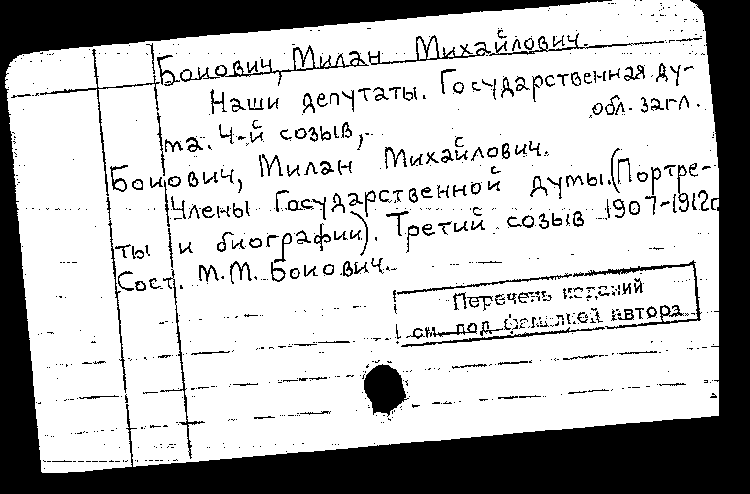 Боиович, Милан Михайлович.
Наши депутаты. Государственная ду-
обл. загл.
ма. 4-й созыв,
Боиович, Милан Михайлович.
Члены Государственной думы. (Портре-
ты и биографии). Третий созыв 1907-1912г
Сост. М.М. Боиович.
Перечень изданий
см. под фамилией автора